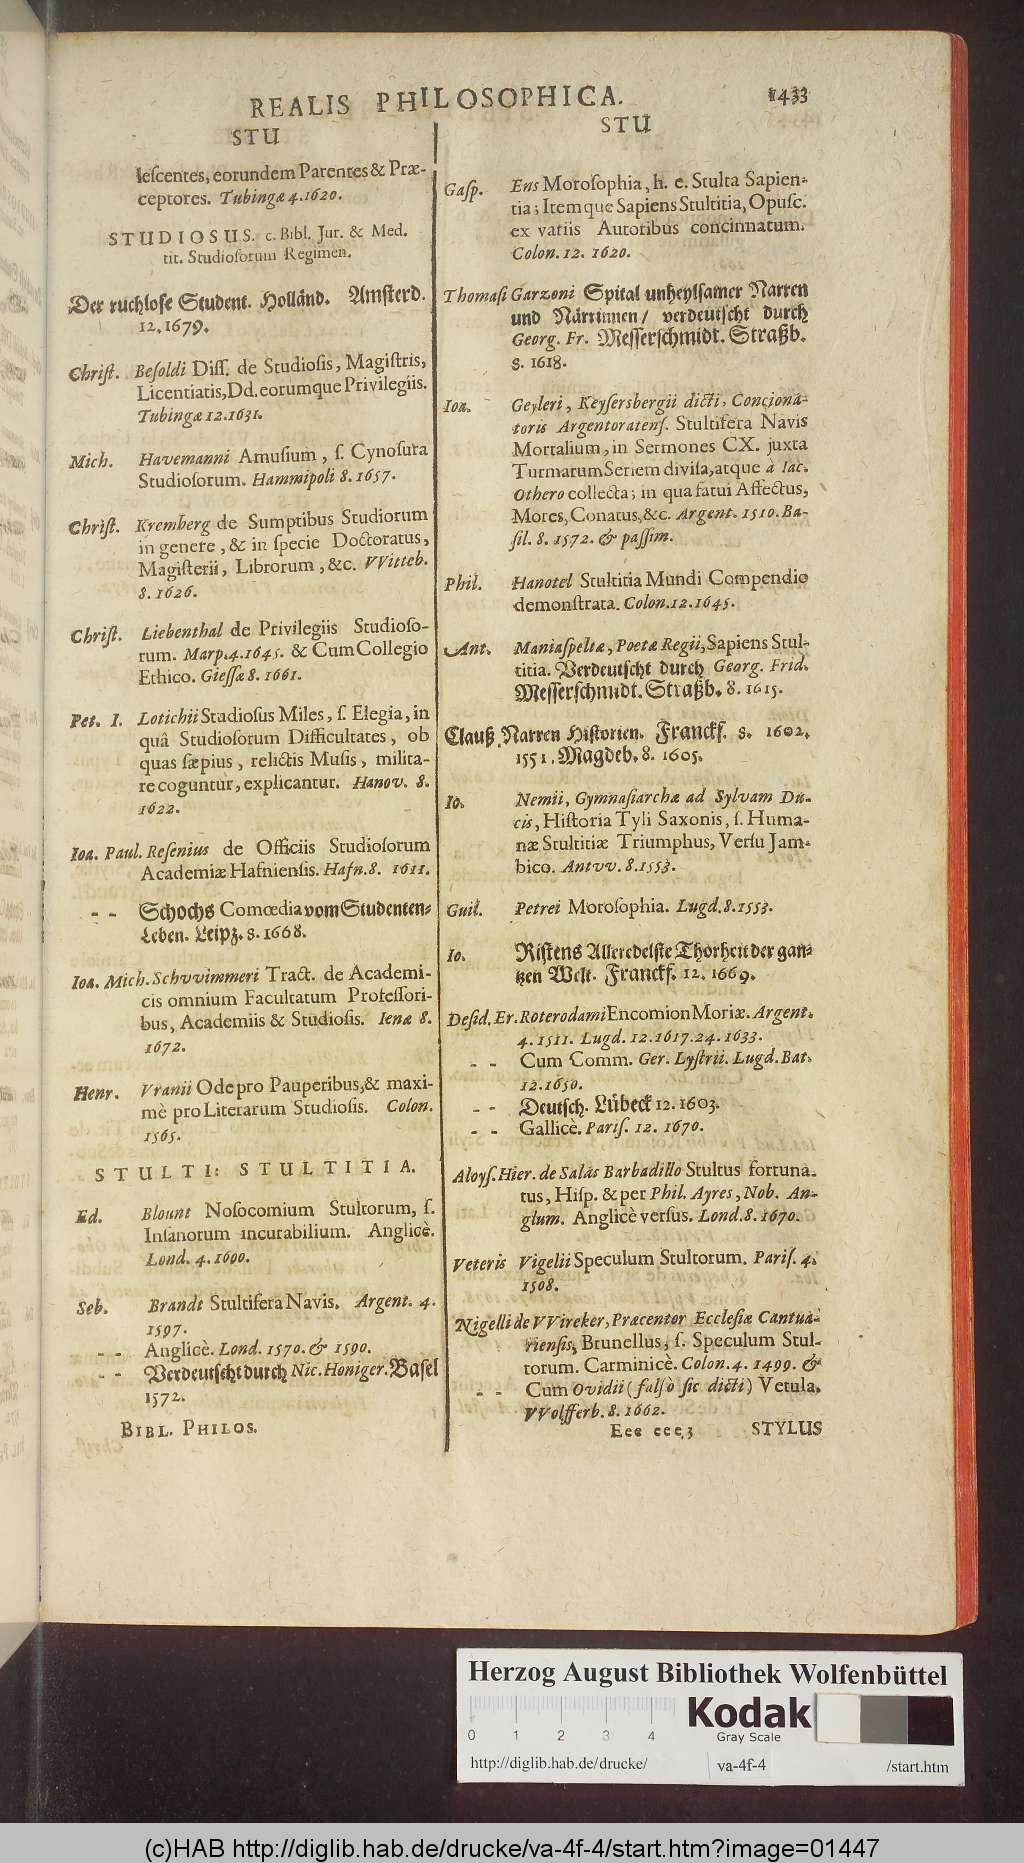 REALIS PHILOSOPHICA. 1433
STU
leſcentes, eorundem Parentes & Præ-
ceptores. Tubingæ 4. 1620.
STUDIOSUS. c. Bibl. Jur. & Med.
tit. Studioſorum Regimen.
Der ruchloſe Student. Holländ. Amſterd.
12. 1679.
Chriſt. Beſoldi Diſſ. de Studioſis, Magiſtris,
Licentiatis, Dd. eorumque Privilegiis.
Tubingæ 12. 1631.
Mich. Havemanni Amuſium, ſ. Cynoſura
Studioſorum. Hammipoli 8. 1657.
Chriſt. Kremberg de Sumptibus Studiorum
in genere, & in ſpecie Doctoratus,
Magiſterii, Librorum, &c. VVitteb.
8. 1626.
Chriſt. Liebenthal de Privilegiis Studioſo-
rum. Marp. 4. 1645. & Cum Collegio
Ethico. Gieſſæ 8. 1661.
Pet. I. Lotichii Studioſus Miles, ſ. Elegia, in
quâ Studioſorum Difficultates, ob
quas ſæpius, relictis Muſis, milita-
re coguntur, explicantur. Hanov. 8.
1622.
Ioa. Paul. Reſenius de Officiis Studioſorum
Academiæ Hafnienſis. Hafn. 8. 1611.
- - Schochs Comœdia vom Studenten-
Leben. Leipz. 8. 1668.
Ioa. Mich. Schvvimmeri Tract. de Academi-
cis omnium Facultatum Profeſſori-
bus, Academiis & Studioſis. Ienæ 8.
1672.
Henr. Vranii Ode pro Pauperibus, & maxi-
mè pro Literarum Studioſis. Colon.
1565.
STULTI: STULTITIA.
Ed. Blount Noſocomium Stultorum, ſ.
Inſanorum incurabilium. Anglicè.
Lond. 4. 1600.
Seb. Brandt Stultifera Navis. Argent. 4.
1597.
- - Anglicè. Lond. 1570. & 1590.
- - Verdeutſcht durch Nic. Honiger. Baſel
1572.
BIBL. PHILOS.
STU
Gaſp. Ens Moroſophia, h. e. Stulta Sapien-
tia; Itemque Sapiens Stultitia, Opuſc.
ex variis Autoribus concinnatum.
Colon. 12. 1620.
Thomaſi Garzoni Spital unheylſamer Narren
und Närrinnen/ verdeutſcht durch
Georg. Fr. Meſſerſchmidt. Straßb.
8. 1618.
Ioa. Geyleri, Keyſersbergii dicti, Conciona-
toris Argentoratenſ. Stultifera Navis
Mortalium, in Sermones CX. juxta
Turmarum Seriem diviſa, atque à Iac.
Othero collecta; in qua fatui Affectus,
Mores, Conatus, &c. Argent. 1510. Ba-
ſil. 8. 1572. & paſſim.
Phil. Hanotel Stultitia Mundi Compendio
demonſtrata. Colon. 12. 1645.
Ant. Maniaſpeltæ, Poetæ Regii, Sapiens Stul-
titia. Verdeutſcht durch Georg. Frid.
Meſſerſchmidt. Straßb. 8. 1615.
Clauß Narren Hiſtorien. Franckf. 8. 1602.
1551. Magdeb. 8. 1605.
Io. Nemii, Gymnaſiarchæ ad Sylvam Du-
cis, Hiſtoria Tyli Saxonis, ſ. Huma-
næ Stultitiæ Triumphus, Verſu Jam-
bico. Antvv. 8. 1553.
Guil. Petrei Moroſophia. Lugd. 8. 1553.
Io. Riſtens Alleredelſte Thorheit der gan-
tzen Welt. Franckf. 12. 1669.
Deſid. Er. Roterodami Encomion Moriæ. Argent.
4. 1511. Lugd. 12. 1617. 24. 1633.
- - Cum Comm. Ger. Lyſtrii. Lugd. Bat.
12. 1650.
- - Deutſch. Lübeck 12. 1603.
- - Gallicè. Pariſ. 12. 1670.
Aloyſ. Hier. de Salas Barbadillo Stultus fortuna-
tus, Hiſp. & per Phil. Ayres, Nob. An-
glum. Anglicè verſus. Lond. 8. 1670.
Veteris Vigelii Speculum Stultorum. Pariſ. 4.
1508.
Nigelli de VVireker, Præcentor Eccleſiæ Cantua-
rienſis, Brunellus, ſ. Speculum Stul-
torum. Carminicè. Colon. 4. 1499. &
- - Cum Ovidii (falſò ſic dicti) Vetula.
VVolfferb. 8. 1662.
Eee eee 3 STYLUS
Herzog August Bibliothek Wolfenbüttel
0 1 2 3 4
Kodak
Gray Scale
http://diglib.hab.de/drucke/ va-4f-4 /start.htm
(c)HAB http://diglib.hab.de/drucke/va-4f-4/start.htm?image=01447